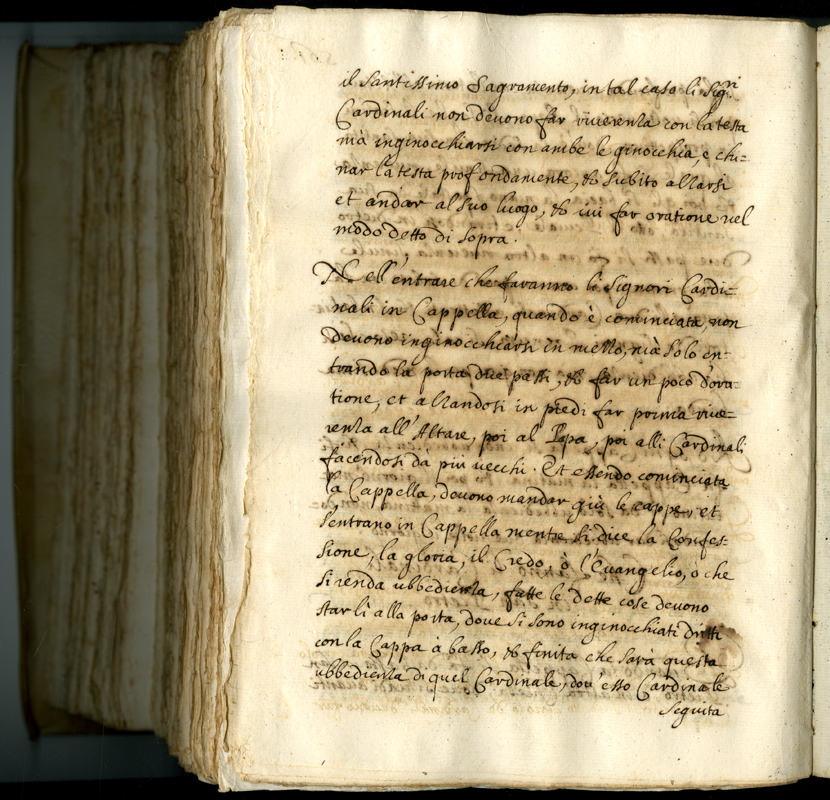 il Santissimo Sagramento, in tal caso li Sig.ri
Cardinali non devono far riverenza con la testa
mà inginocchiarsi con ambe le ginocchia, e chi-
nar la testa profondamente, & subito alzarsi
et andar al suo luogo, & ivi far oratione nel
modo detto di sopra.
Nell'entrare che faranno li Signori Cardi-
nali in Cappella, quando è cominciata, non
devono inginocchiarsi in mezzo, mà solo en-
trando la porta due passi, & far un poco d'ora-
tione, et alzandosi in piedi far prima rive-
renza all'Altare, poi al Papa, poi alli Cardinali
facendosi dà più vecchi. Et essendo cominciata
la Cappella, devono mandar giù le cappe, et
s'entrano in Cappella mentre si dice la Confes-
sione, la gloria, il Credo, ò l'Euangelio, ò che
si renda ubbedienza, fatte le dette cose devono
star lì alla porta, dove si sono inginocchiati dritti
con la Cappa à basso, & finita che sarà questa
ubbedienza di quel Cardinale, dou'esso Cardinale
Seguita